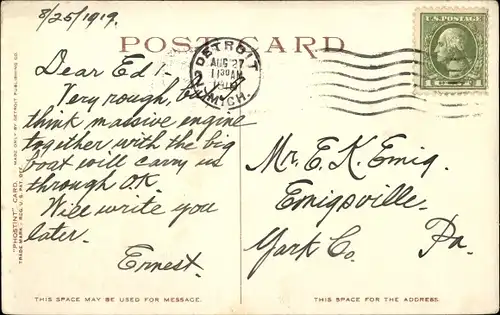 8/25/1919.
POST CARD
DETROIT
AUG 27
11 30 AM
MICH.
U.S. POSTAGE
Dear Ed!-
Very rough, but
think massive engine
together with the big
boat will carry us
through OK.
Will write you
later.
Ernest.
Mr. E. K. Emig.
Emigsville.
York Co. Pa.
"PHOSTINT" CARD. MADE ONLY BY DETROIT PUBLISHING CO.
TRADE MARK REG. U.S. PAT. OFF.
THIS SPACE MAY BE USED FOR MESSAGE.
THIS SPACE FOR THE ADDRESS.